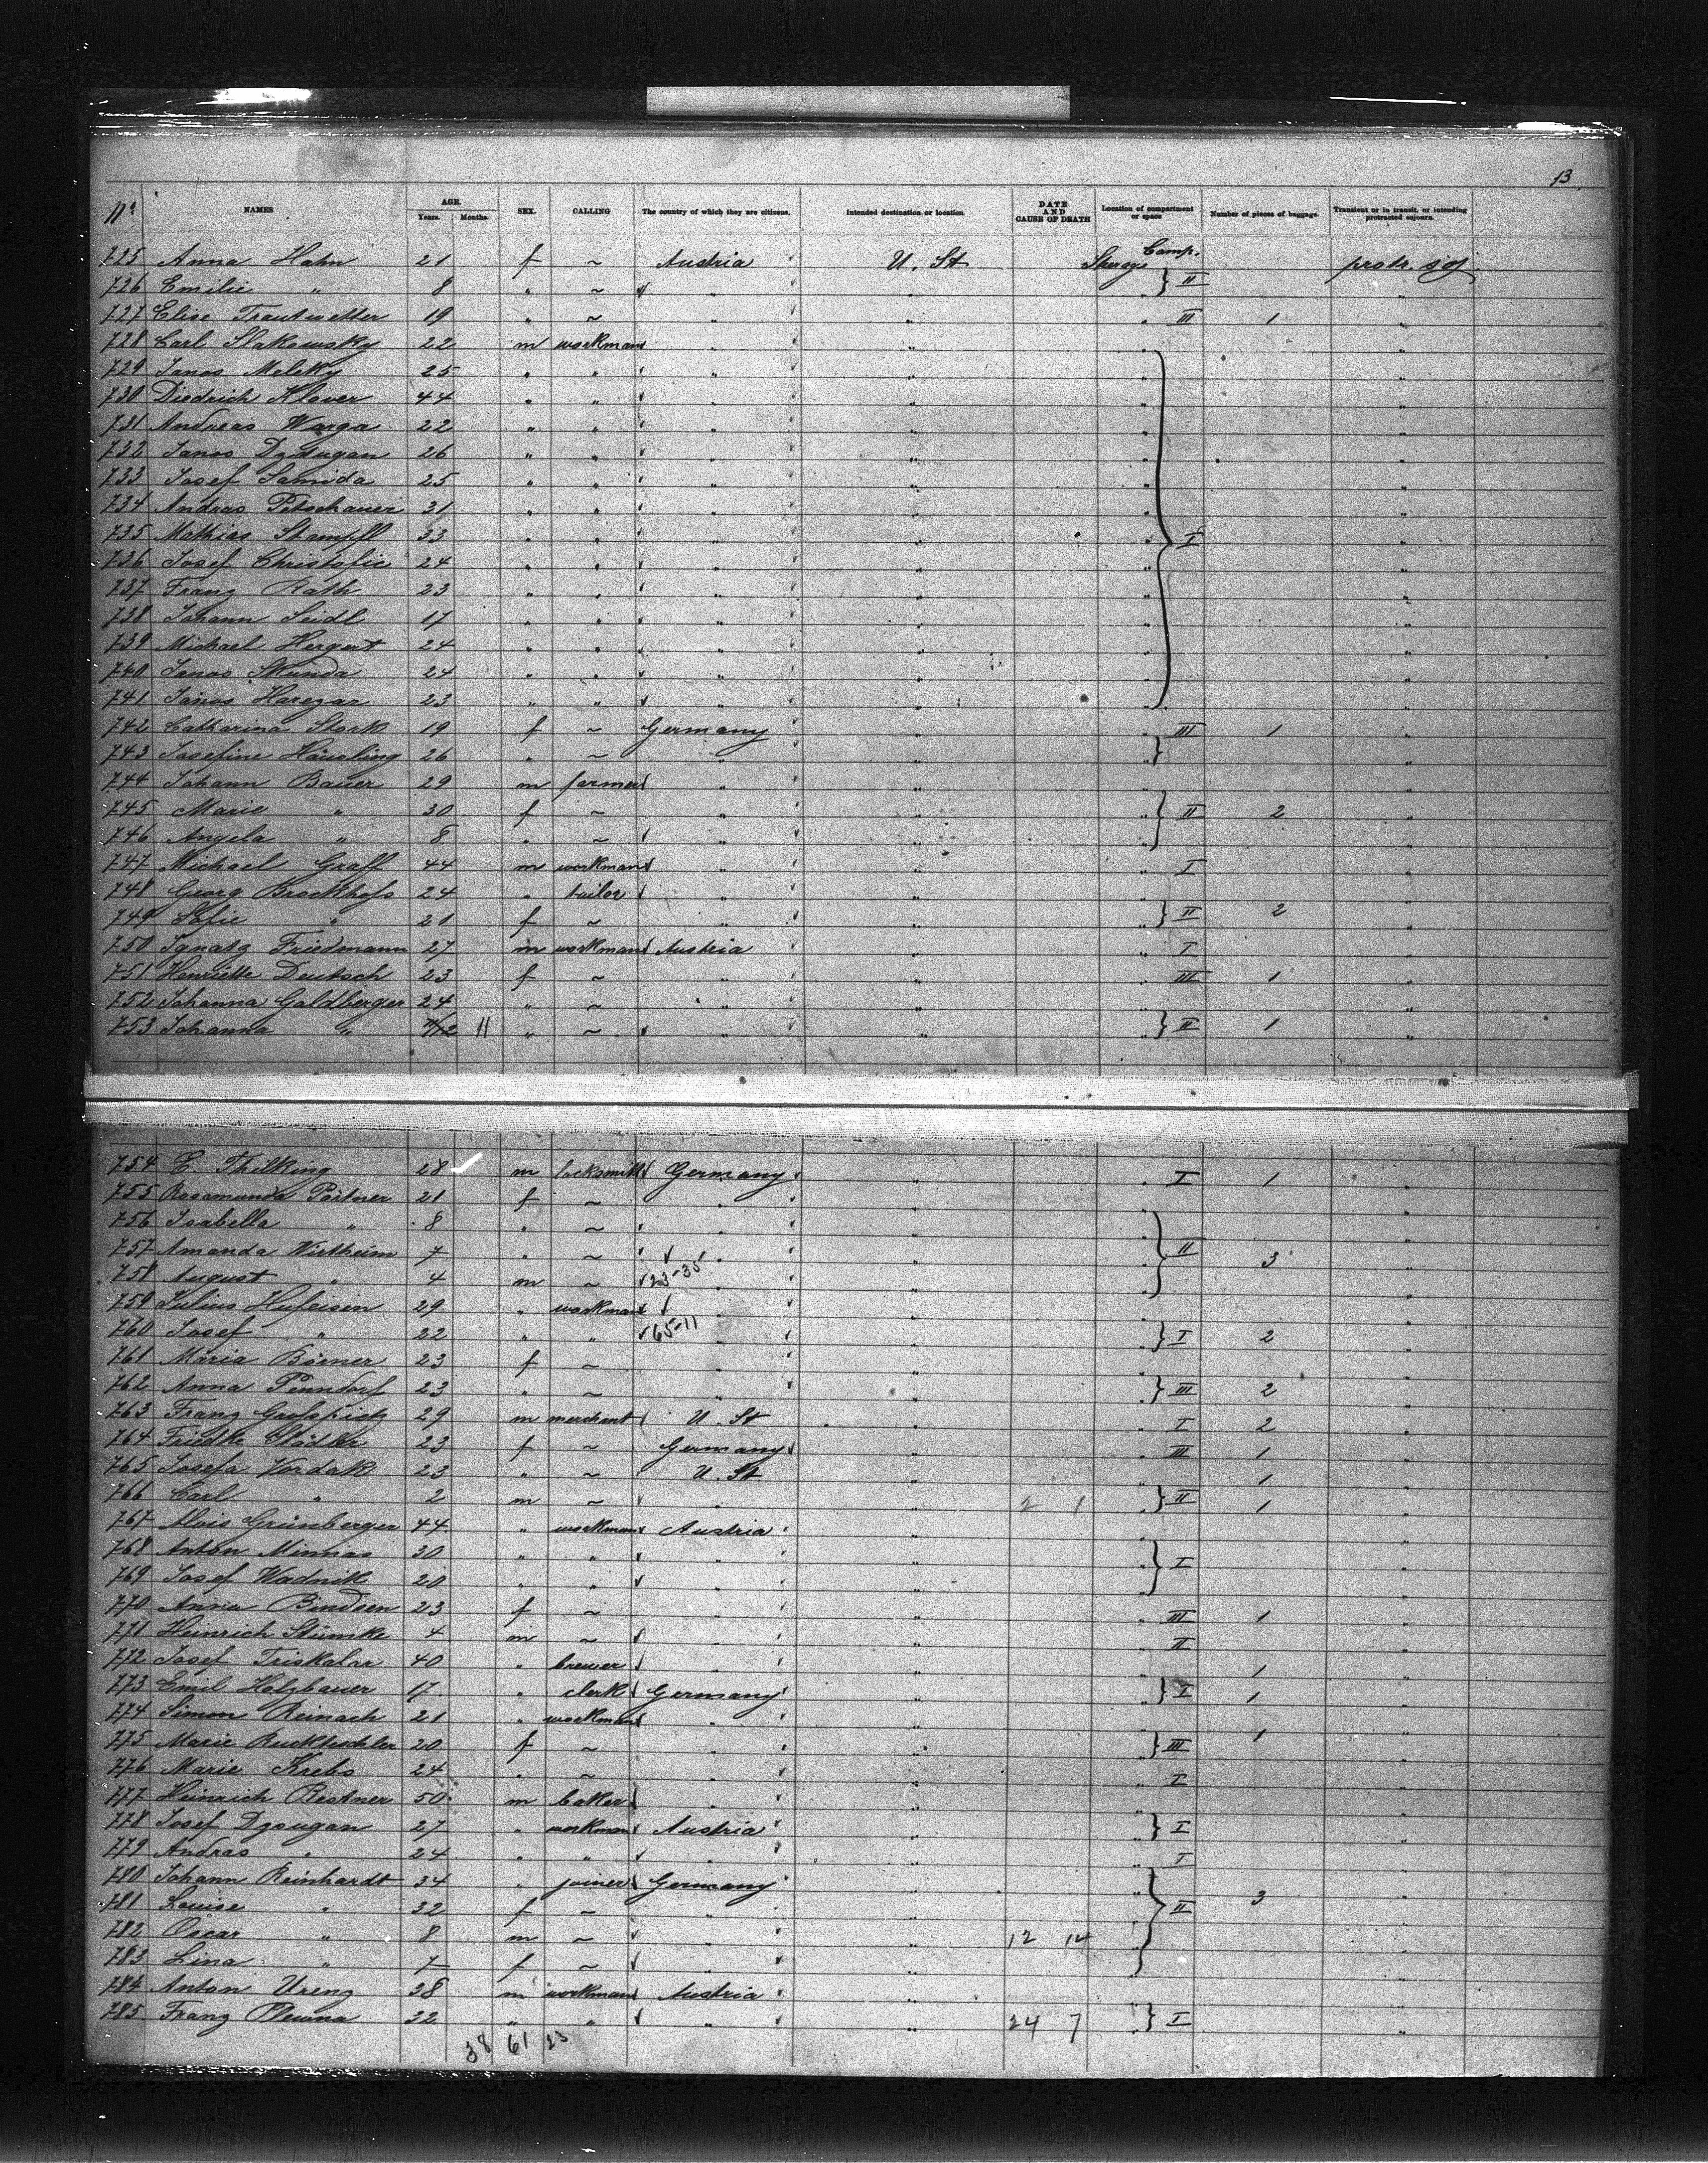 13
No NAMES AGE. Years. Months. SEX. CALLING The country of which they are citizens. Intended destination or location DATE AND CAUSE OF DEATH Location of compartment or space Number of pieces of baggage. Transient or in transit, or intending protracted sojourn.
725 Anna Hahn 21 f ~ Austria U. St Camp. II protr. soj
726 Emilie " 8 " ~ " " " "
727 Elise Trautwetter 19 " ~ " " " III 1 "
728 Carl Slakowsky 22 m workman " " " "
729 Janos Meleky 25 " " " " " "
730 Diedrich Klaver 44 " " " " " "
731 Andreas Warga 22 " " " " " "
732 Janos Dzougan 26 " " " " " "
733 Josef Samida 25 " " " " " "
734 Andras Petschauer 31 " " " " " "
735 Mathias Stampfl 33 " " " " " I "
736 Josef Christofic 24 " " " " " "
737 Franz Rath 23 " " " " " "
738 Johann Seidl 17 " " " " " "
739 Michael Hergert 24 " " " " " "
740 Janos Skunda 24 " " " " " "
741 Janos Harezar 23 " " " " " "
742 Catharina Stork 19 f ~ Germany " " III 1 "
743 Josefine Häusling 26 " ~ " " " "
744 Johann Bauer 29 m farmer " " " "
745 Marie " 30 f ~ " " " II 2 "
746 Angela " 8 " ~ " " " "
747 Michael Graff 44 m workman " " " I "
748 Georg Brockhofs 24 " tailor " " " "
749 Sofie " 21 f ~ " " " II 2 "
750 Ignatz Friedmann 27 m workman Austria " " I "
751 Henriette Deutsch 23 f ~ " " " III 1 "
752 Johanna Goldberger 24 " ~ " " " "
753 Johanna " 11/12 11 " ~ " " " II 1 "
754 C. Thilking 28 m locksmith Germany " " I 1 "
755 Rosamunda Pörtner 21 f ~ " " " "
756 Isabella " 8 " ~ " " " "
757 Amanda Wietheim 7 " ~ " " " II 3 "
758 August " 4 m ~ 23-35 " " " "
759 Julius Hufeisen 29 " workman " " " "
760 Josef " 22 " " 65-11 " " " I 2 "
761 Maria Börner 23 f ~ " " " "
762 Anna Penndorf 23 " ~ " " " III 2 "
763 Franz 29 m merchant U. St " " I 2 "
764 Friedke Städtler 23 f ~ Germany " " III 1 "
765 Josefa Vordak 23 " ~ U. St " " 1 "
766 Carl " 2 m ~ " " 2 1 " II 1 "
767 Alois Grünberger 44 " workman Austria " " "
768 Anton Minnas 30 " " " " " I "
769 Josef Wadnik 20 " " " " " "
770 Anna Bindsen 23 f ~ " " " III 1 "
771 Heinrich Stümke 4 m ~ " " " II "
772 Josef Triskalar 40 " brewer " " " 1 "
773 Emil Holzbauer 17 " clerk Germany " " I 1 "
774 Simon Reinach 21 " workman " " " "
775 Marie Ruckteschler 20 f ~ " " " III 1 "
776 Marie Krebs 24 " ~ " " " I "
777 Heinrich Restner 50 m baker " " " "
778 Josef Dzougan 27 " workman Austria " " I "
779 Andras " 24 " " " " " I "
780 Johann Reinhardt 34 " joiner Germany " " "
781 Louise " 32 f ~ " " " II 3 "
782 Oscar " 8 m ~ " " 12 14 " "
783 Lina " 7 f ~ " " " "
784 Anton Ureng 38 m workman Austria " " "
785 Franz Plewna 32 " " " " 24 7 " I "
38 61 23